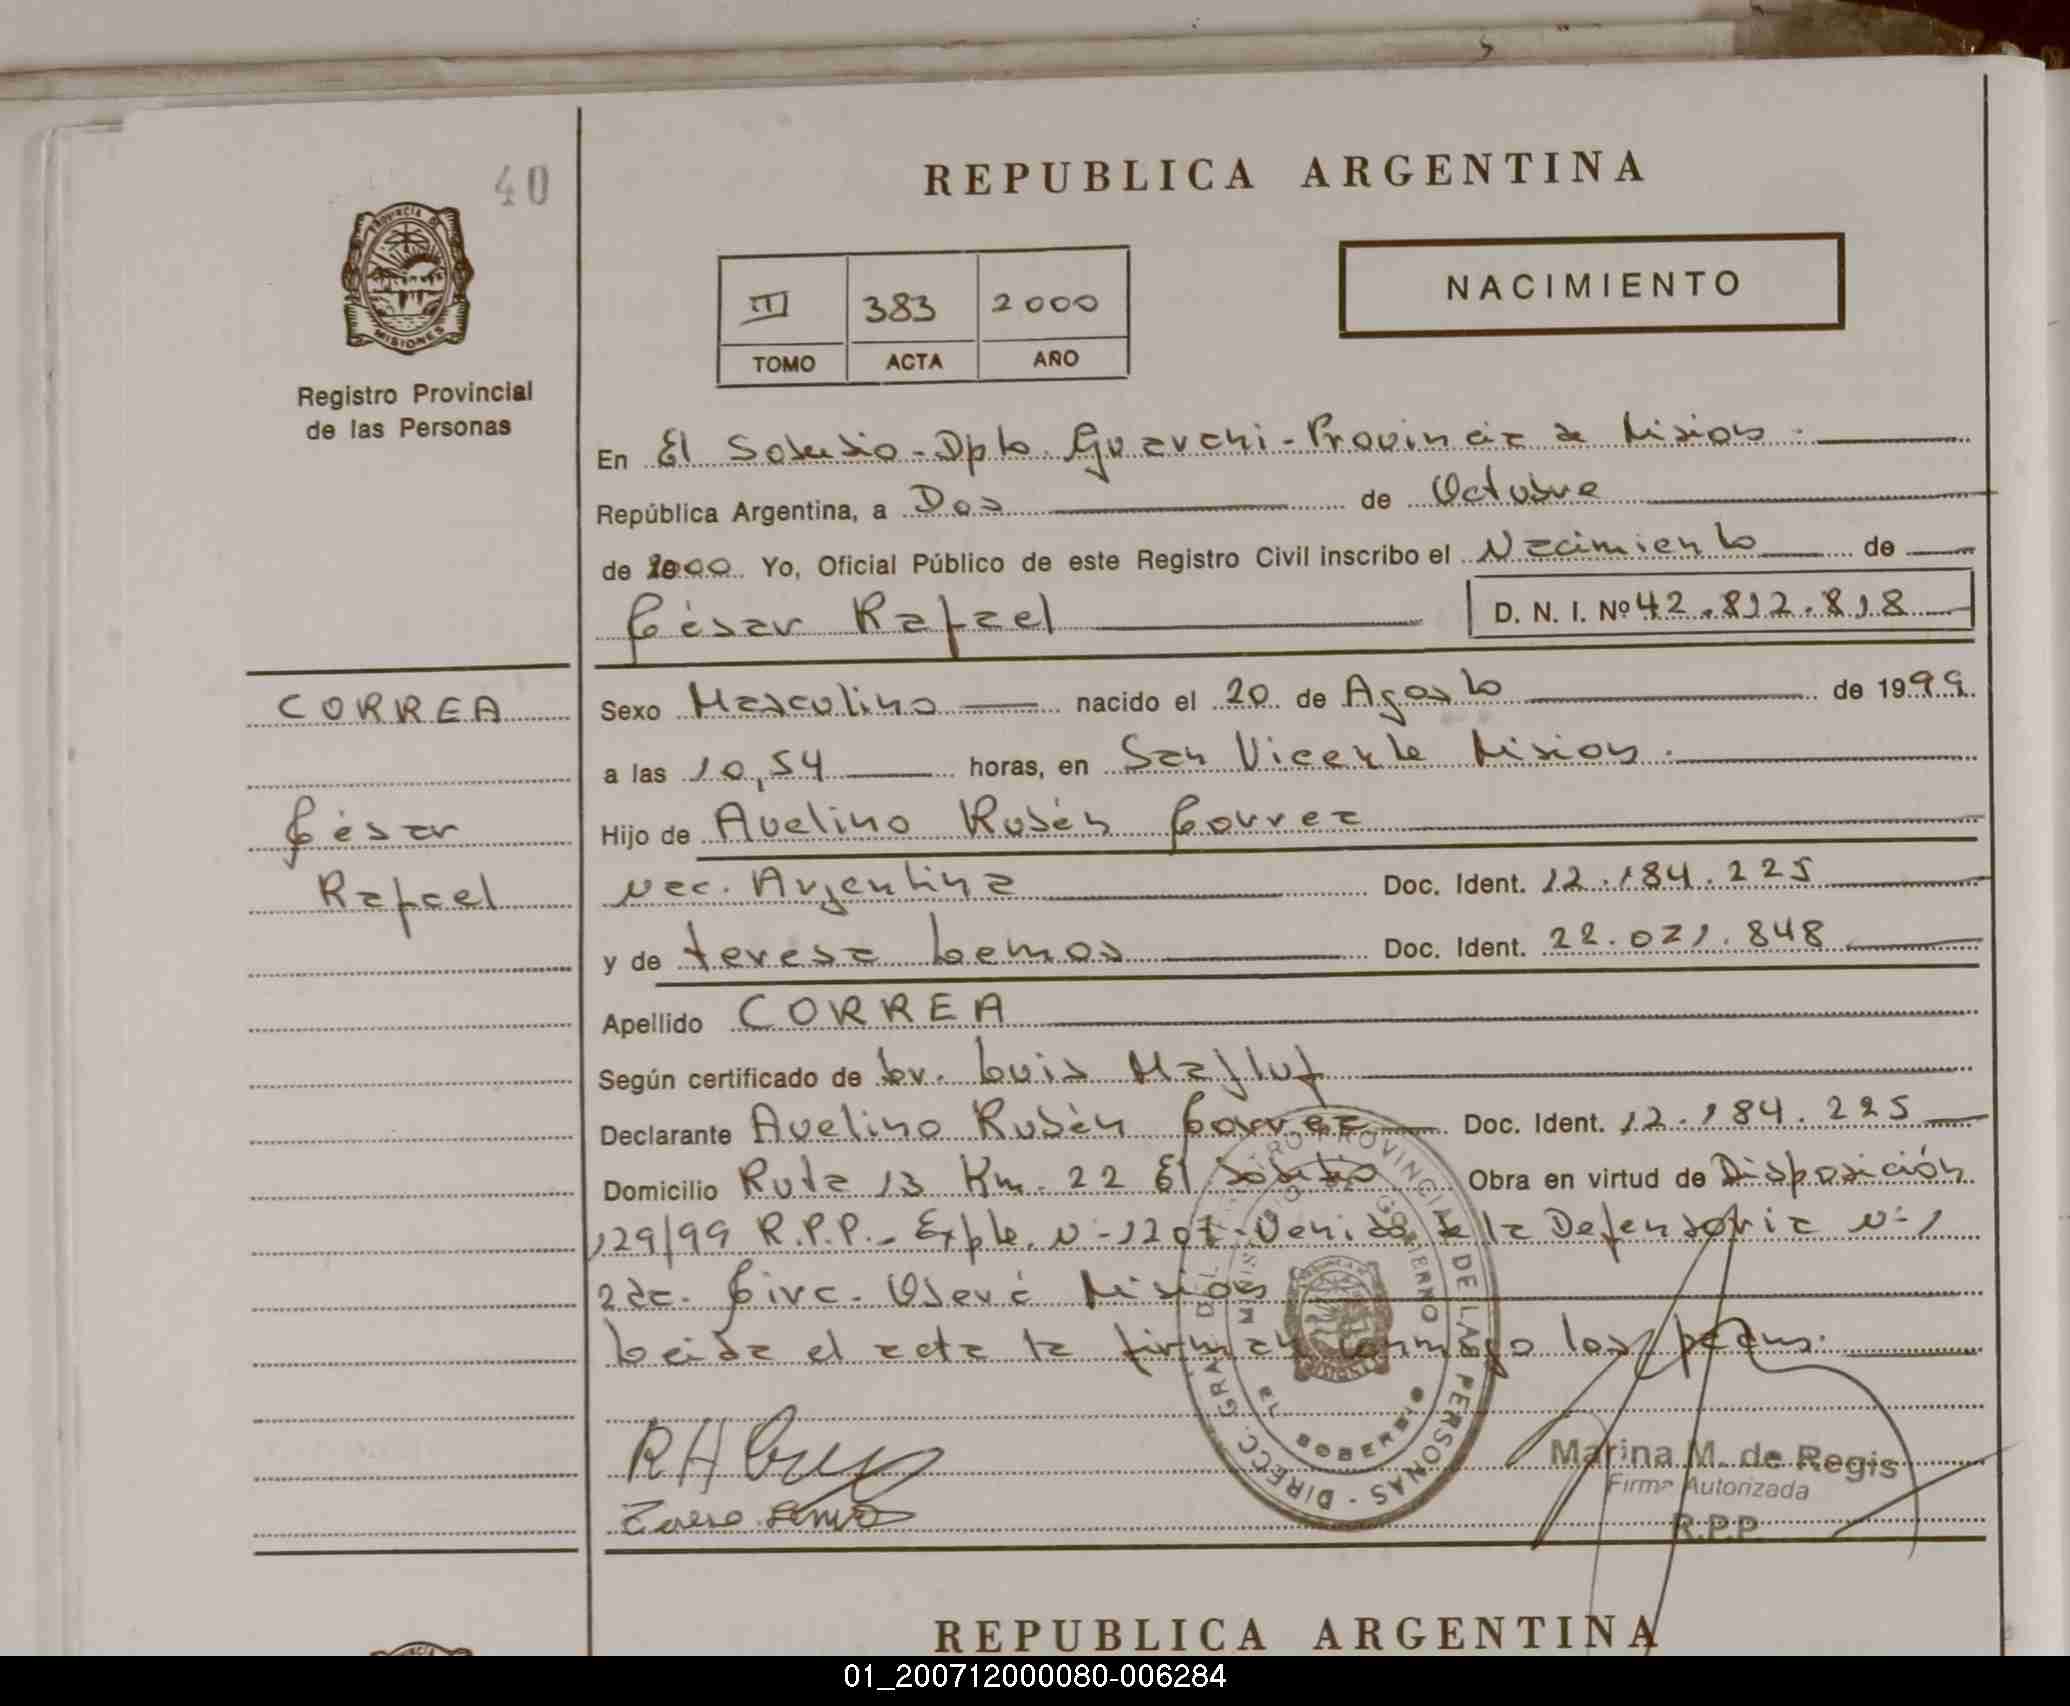 40
REPUBLICA ARGENTINA
NACIMIENTO
III 383 2000
TOMO ACTA AÑO
PROVINCIA DE
MISIONES
Registro Provincial
de las Personas
En El Soberbio - Dpto Guarani - Provincia de Misiones.
República Argentina, a Dos de Octubre
de 2000 Yo, Oficial Público de este Registro Civil inscribo el Nacimiento de
César Rafael D. N. I. Nº 42.812.818
CORREA
César
Rafael
Sexo Masculino nacido el 20 de Agosto de 1999
a las 10,54 horas, en San Vicente Misiones.
Hijo de Avelino Rubén Correa
nac. Argentina Doc. Ident. 12.184.225
y de teresa Lemos Doc. Ident. 22.021.848
Apellido CORREA
Según certificado de Dr. Luis
Declarante Avelino Rubén Correa Doc. Ident. 12.184.225
Domicilio Ruta 13 Km. 22 El Soberbio Obra en virtud de Disposición
129/99 R.P.P. - Expte. Nº 1207 - Venida de la Defensoria Nº 1
2da. Circ. Oberá Misiones
Leida el acta la firman conmigo los padres.
DIRECC. GRAL. DEL REGISTRO PROVINCIAL DE LAS PERSONAS
MINISTERIO DE GOBIERNO
EL SOBERBIO
Marina M. de Regis
Firma Autorizada
R.P.P.
REPUBLICA ARGENTINA
01_200712000080-006284